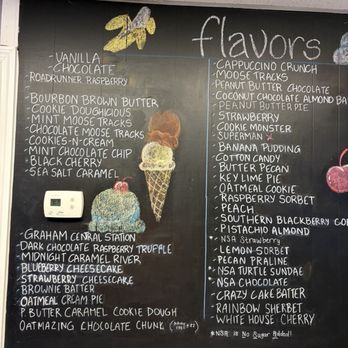 flavors
-VANILLA
-CHOCOLATE
-ROADRUNNER RASPBERRY
-BOURBON BROWN BUTTER
-COOKIE DOUGHICIOUS
-MINT MOOSE TRACKS
-CHOCOLATE MOOSE TRACKS
-COOKIES-N-CREAM
-MINT CHOCOLATE CHIP
-BLACK CHERRY
-SEA SALT CARAMEL
-GRAHAM CENTRAL STATION
-DARK CHOCOLATE RASPBERRY TRUFFLE
-MIDNIGHT CARAMEL RIVER
-BLUEBERRY CHEESECAKE
-STRAWBERRY CHEESECAKE
-BROWNIE BATTER
-OATMEAL CREAM PIE
-P. BUTTER CARAMEL COOKIE DOUGH
-OATMAZING CHOCOLATE CHUNK
-CAPPUCCINO CRUNCH
-MOOSE TRACKS
-PEANUT BUTTER CHOCOLATE
-COCONUT CHOCOLATE ALMOND BA
-PEANUT BUTTER PIE
-STRAWBERRY
-COOKIE MONSTER
-SUPERMAN
-BANANA PUDDING
-COTTON CANDY
-BUTTER PECAN
-KEY LIME PIE
-OATMEAL COOKIE
-RASPBERRY SORBET
-PEACH
-SOUTHERN BLACKBERRY CO
-PISTACHIO ALMOND
*NSA Strawberry
-LEMON SORBET
-PECAN PRALINE
*NSA TURTLE SUNDAE
*NSA CHOCOLATE
-CRAZY CAKE BATTER
-RAINBOW SHERBET
-WHITE HOUSE CHERRY
*NSA IS No Sugar Added!